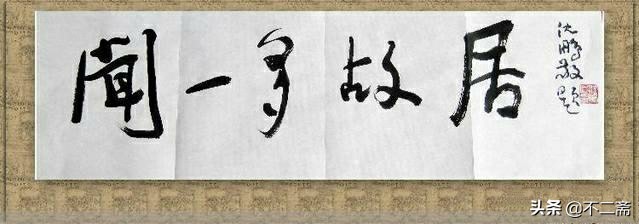 聞一多故居
沈鹏敬题
头条 @不二斋